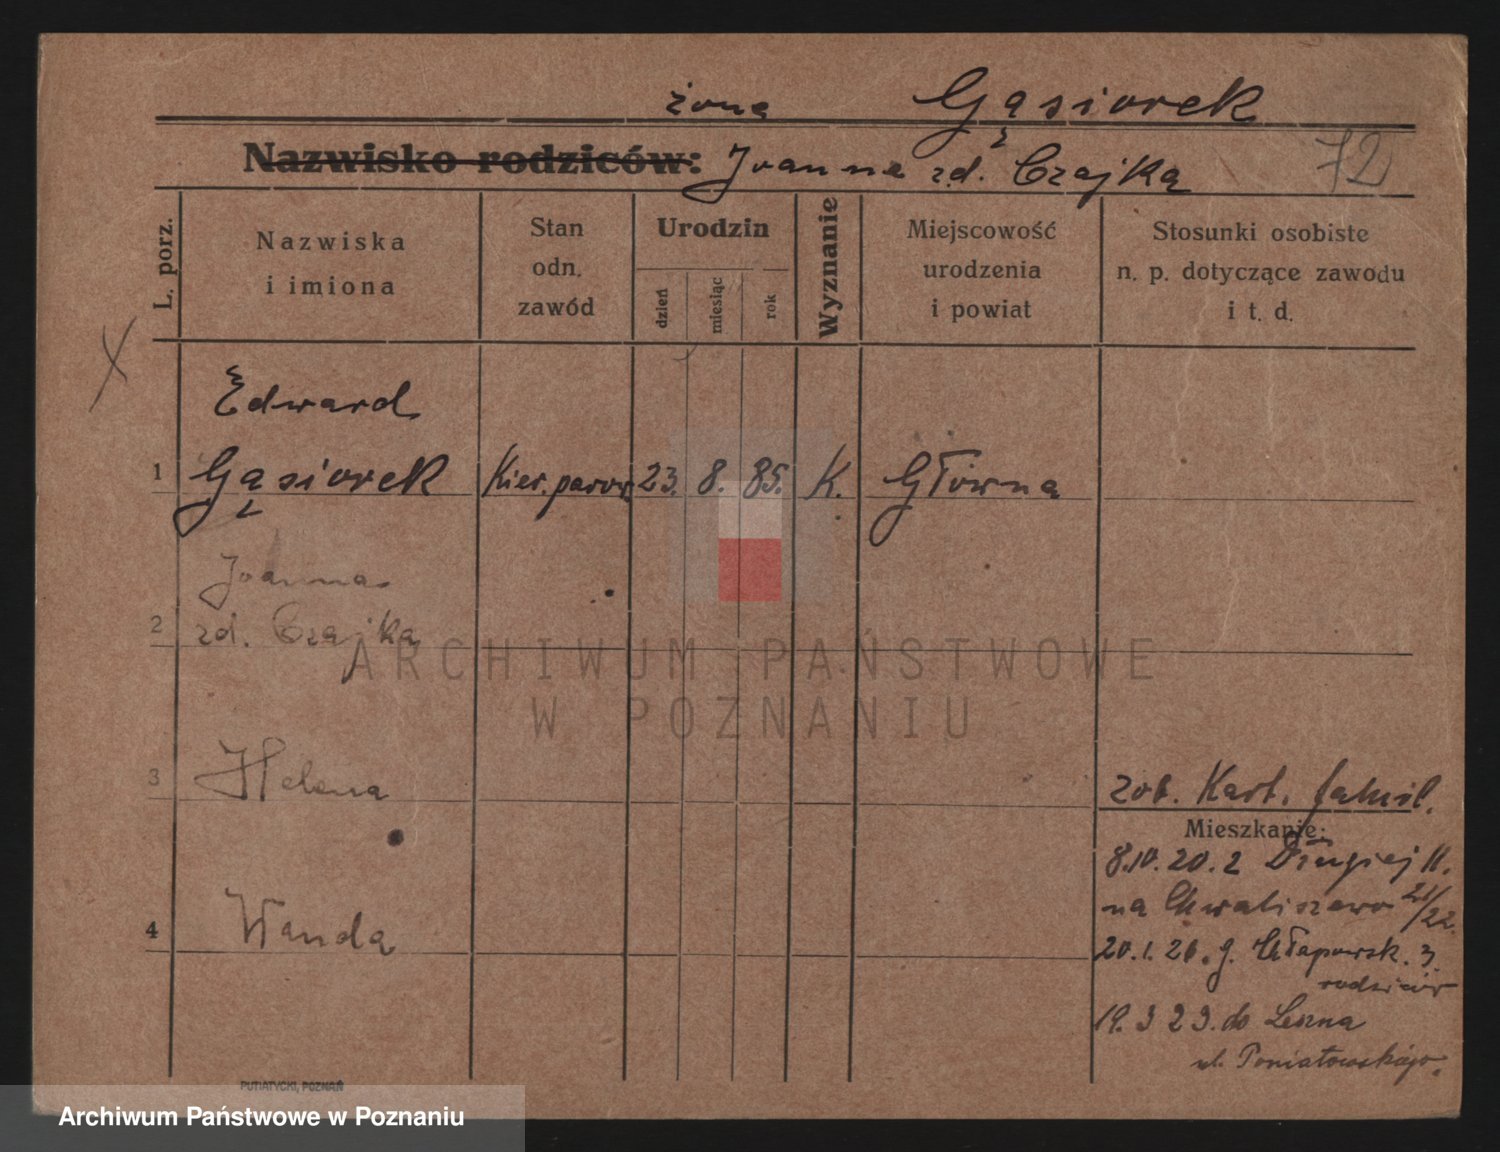 żona Gąsiorek
Nazwisko rodziców: Joanna zd. Czajka 72
L. porz.
Nazwiska
i imiona
Stan
odn.
zawód
Urodzin
dzień
miesiąc
rok
Wyznanie
Miejscowość
urodzenia
i powiat
Stosunki osobiste
n. p. dotyczące zawodu
i t. d.
Edward
1 Gąsiorek Kier. parow. 23. 8. 85. K. Główna
Joanna
2 zd. Czajka
3 Helena
4 Wanda
zob. Kart. famil.
Mieszkanie:
8.10.20. z Długiej 11.
na Chwaliszewo 21/22.
20.1.21. g. Chłapowsk. 3.
rodziców
19. 3 23. do Leszna
ul. Poniatowskiego.
PUTIATYCKI, POZNAŃ
ARCHIWUM PAŃSTWOWE
W POZNANIU
Archiwum Państwowe w Poznaniu